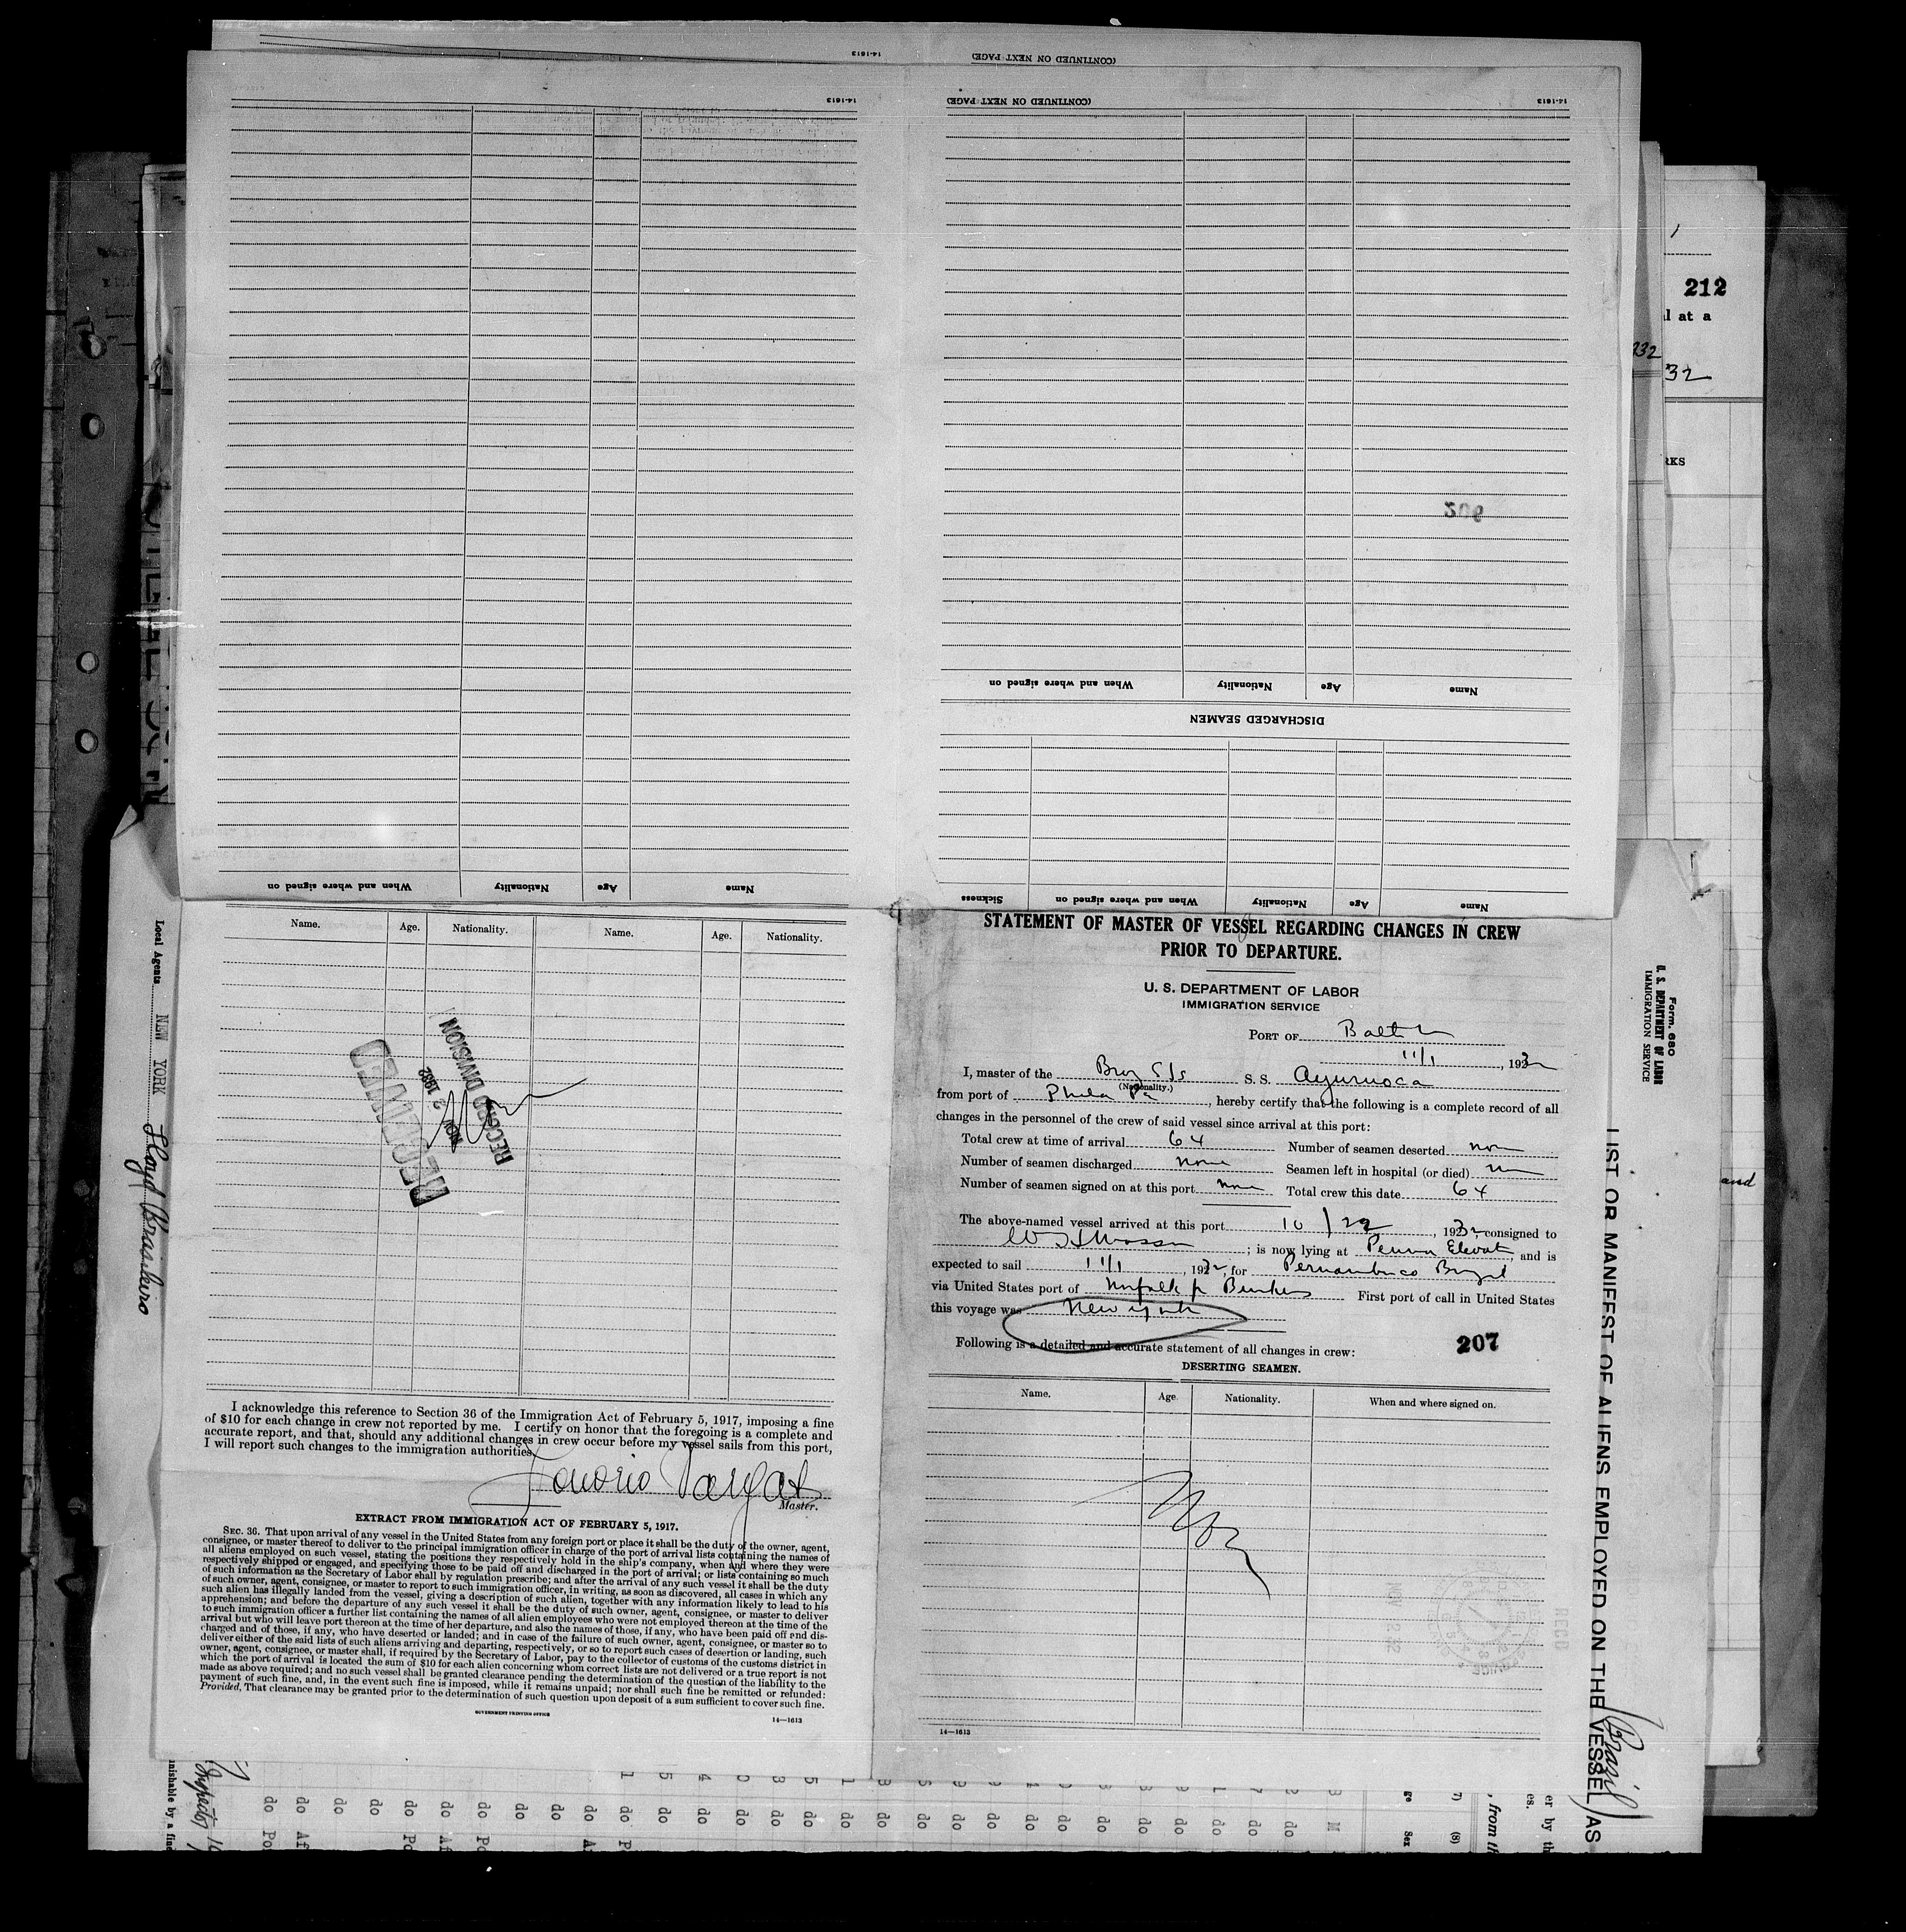 (CONTINUED ON NEXT PAGE)
14-1613
(CONTINUED ON NEXT PAGE)
14-1613
14-1613
206
When and where signed on Nationality Age Name
DISCHARGED SEAMEN
When and where signed on Nationality Age Name
Sickness When and where signed on Nationality Age Name
212
l at a
32
RKS
and
Name. Age. Nationality. Name. Age. Nationality.
RECEIVED
NOV 2 1932
RECORD DIVISION
I acknowledge this reference to Section 36 of the Immigration Act of February 5, 1917, imposing a fine
of $10 for each change in crew not reported by me. I certify on honor that the foregoing is a complete and
accurate report, and that, should any additional changes in crew occur before my vessel sails from this port,
I will report such changes to the immigration authorities.
Vargas
Master.
EXTRACT FROM IMMIGRATION ACT OF FEBRUARY 5, 1917.
SEC. 36. That upon arrival of any vessel in the United States from any foreign port or place it shall be the duty of the owner, agent,
consignee, or master thereof to deliver to the principal immigration officer in charge of the port of arrival lists containing the names of
all aliens employed on such vessel, stating the positions they respectively hold in the ship's company, when and where they were
respectively shipped or engaged, and specifying those to be paid off and discharged in the port of arrival; or lists containing so much
of such information as the Secretary of Labor shall by regulation prescribe; and after the arrival of any such vessel it shall be the duty
of such owner, agent, consignee, or master to report to such immigration officer, in writing, as soon as discovered, all cases in which any
such alien has illegally landed from the vessel, giving a description of such alien, together with any information likely to lead to his
apprehension; and before the departure of any such vessel it shall be the duty of such owner, agent, consignee, or master to deliver
to such immigration officer a further list containing the names of all alien employees who were not employed thereon at the time of the
arrival but who will leave port thereon at the time of her departure, and also the names of those, if any, who have been paid off and dis-
charged and of those, if any, who have deserted or landed; and in case of the failure of such owner, agent, consignee, or master so to
deliver either of the said lists of such aliens arriving and departing, respectively, or so to report such cases of desertion or landing, such
owner, agent, consignee, or master shall, if required by the Secretary of Labor, pay to the collector of customs of the customs district in
which the port of arrival is located the sum of $10 for each alien concerning whom correct lists are not delivered or a true report is not
made as above required; and no such vessel shall be granted clearance pending the determination of the question of the liability to the
payment of such fine, and, in the event such fine is imposed, while it remains unpaid; nor shall such fine be remitted or refunded:
Provided, That clearance may be granted prior to the determination of such question upon deposit of a sum sufficient to cover such fine.
GOVERNMENT PRINTING OFFICE
14—1613
STATEMENT OF MASTER OF VESSEL REGARDING CHANGES IN CREW
PRIOR TO DEPARTURE.
U. S. DEPARTMENT OF LABOR
IMMIGRATION SERVICE
PORT OF Balto
11/1, 1932
I, master of the Braz S/s S. S. Ayuruoca
(Nationality.)
from port of Phila Pa, hereby certify that the following is a complete record of all
changes in the personnel of the crew of said vessel since arrival at this port:
Total crew at time of arrival 64 Number of seamen deserted none
Number of seamen discharged none Seamen left in hospital (or died)
Number of seamen signed on at this port none Total crew this date 64
The above-named vessel arrived at this port 10/22, 1932, consigned to
; is now lying at Penna Elevat, and is
expected to sail 11/1, 1932, for Pernambuco Brazil
via United States port of Norfolk for Bunkers First port of call in United States
this voyage was New York
Following is a detailed and accurate statement of all changes in crew:
207
DESERTING SEAMEN.
Name. Age. Nationality. When and where signed on.
14—1613
Local Agents NEW YORK Lloyd Brasileiro
Form. 680
U. S. DEPARTMENT OF LABOR
IMMIGRATION SERVICE
LIST OR MANIFEST OF ALIENS EMPLOYED ON THE VESSEL AS
(Brazil)